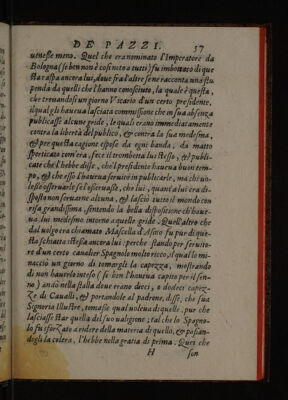 DE PAZZI. 57
venesse meno. Quel che era nominato l'Imperatore da
Bologna (se ben non è cosi noto a tutti) fu imbottato di que
sta raspa ancora lui, doue fra l'altre se ne racconta una stu
penda da quelli che l'hanno conosciuto, la quale è questa,
che trouandosi un giorno Vicario d'un certo presidente,
il qual gli haueua lasciata commissione che in sua absenza
publicasse alcune gride, le quali erano immediatamente
contra la libertà del publico, & contra la sua medesma,
& per questa cagione essose da ogni banda, da matto
spericato com'era, fece il trombetta lui stesso, & publi-
cate che l'hebbe disse, che'l presidente haueua buon tem-
po, & che esso l'haueua seruito in publicarle, ma chi uo-
lesse osseruarle se l'osseruasse, che lui, quant'a lui era di-
sposto non seruarne alcuna, & lasciò tutto il mondo con
risa grandissima, sentendo la bella dispositione ch'haue-
ua lui medesmo intorno a quelle gride. Quell'altro che
dal uolgo era chiamato Mascella d'Asino fu pur di que-
sta schiatta istessa ancor lui: perche stando per seruito-
re d'un certo caualier Spagnolo molto ricco, il qual lo mi-
nacciò un giorno di tomargli la capezza, mostrando
di non hauerlo inteso (se ben l'haueua capito per il sen-
no) andò nella stalla doue erano dieci, o dodeci capez-
ze di Caualli, & portandole al padrone, disse, che sua
Signoria Illustre, tomasse qual uoleua di quelle, pur che
lasciasse star quella del suo ualigione; tal che lo Spagno-
lo fu sforzato a ridere della materia di quello, & passan-
dogli la colera, l'hebbe nella gratia di prima. Quei che
H son